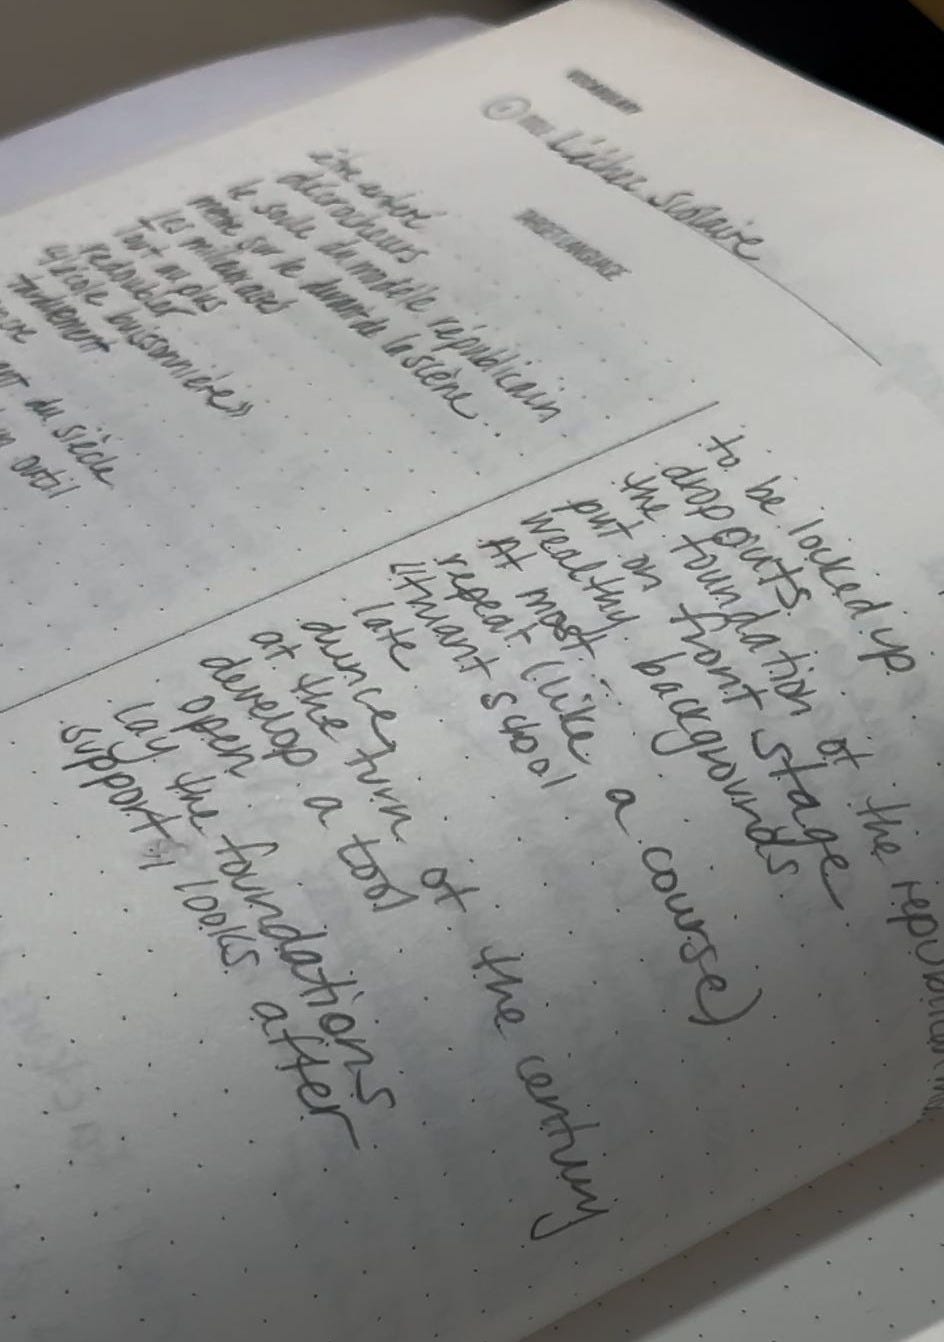 VOCABULARY
scolaire
TARGET LANGUAGE
être
décrocheurs
le socle du modèle républicain
même sur le devant de la scène
les milieux aisés
tout au plus
redoubler
école buissonnière»
tardivement
ant du siècle
un outil
to be locked up
dropouts
the foundation of the republican
put on front stage
wealthy backgrounds
At most
repeat (like a course)
"truant school
late
dunce
at the turn of the century
develop a tool
open
lay the foundations
support, looks after